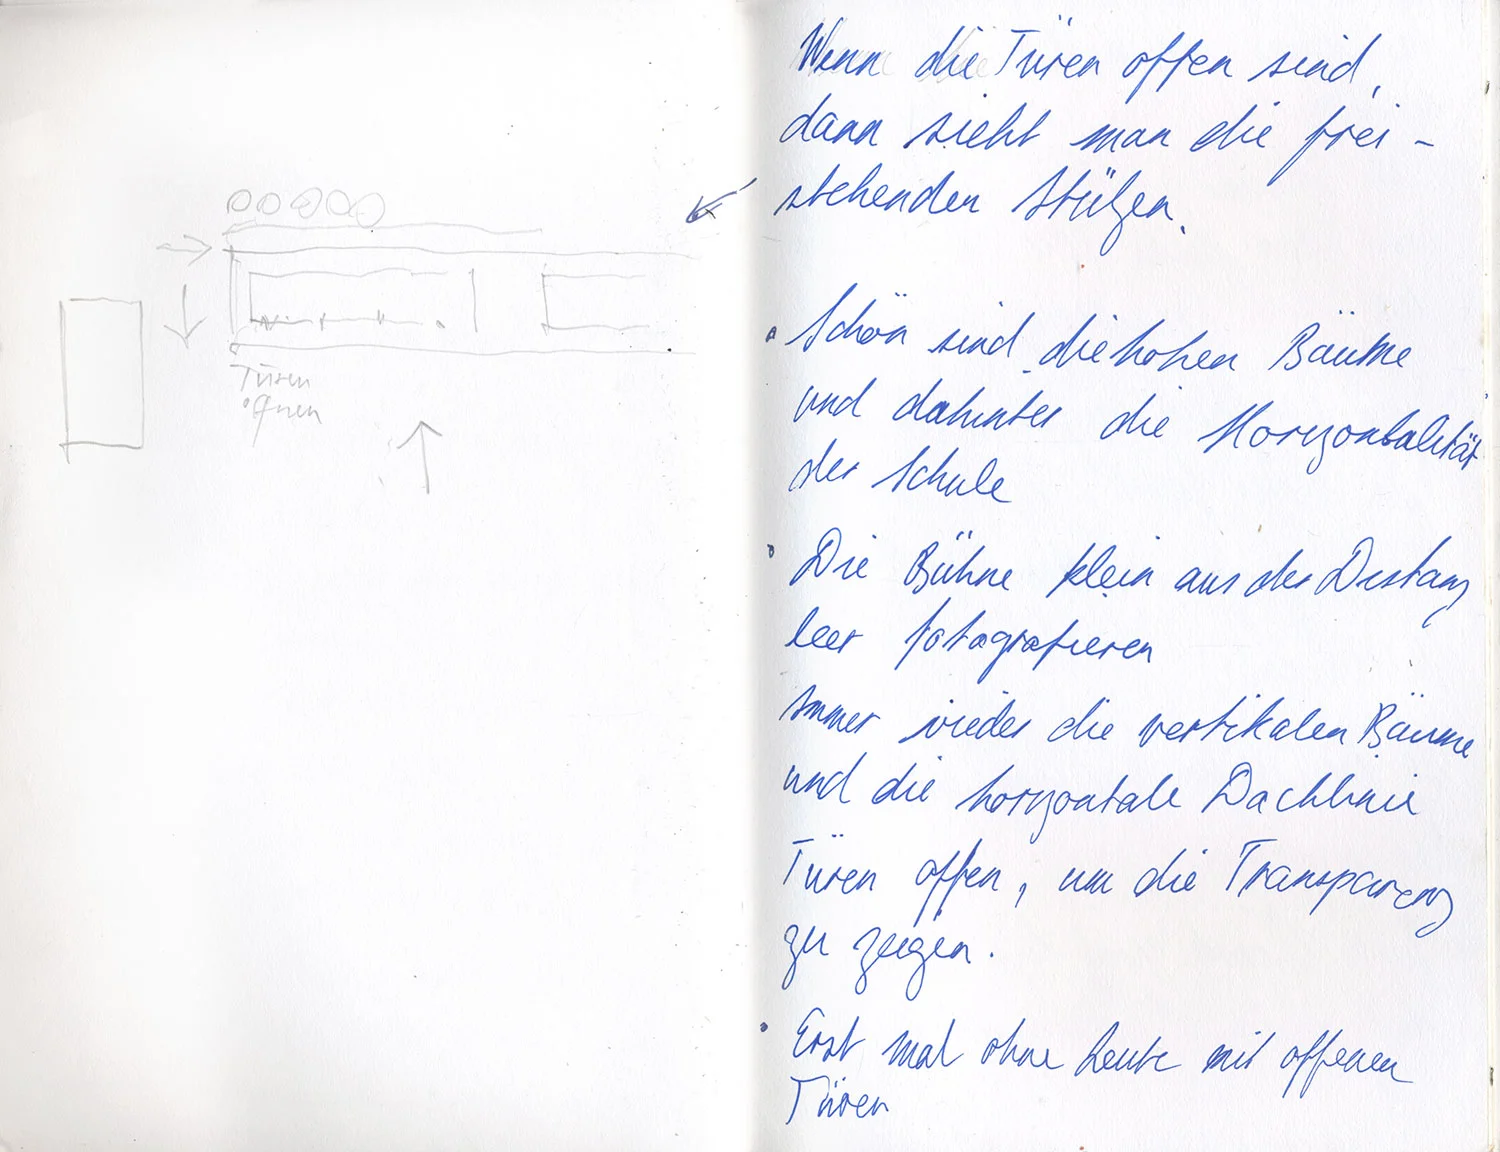 Türen
öffnen
Wenn die Türen offen sind,
dann sieht man die frei-
stehenden Stützen.
• Schön sind die hohen Bäume
und dahinter die Horizontalität
der Schule
• Die Bühne klein aus der Distanz
leer fotografieren
immer wieder die vertikalen Bäume
und die horizontale Dachlinie
Türen offen, um die Transparenz
zu zeigen.
• Erst mal ohne Leute mit offenen
Türen